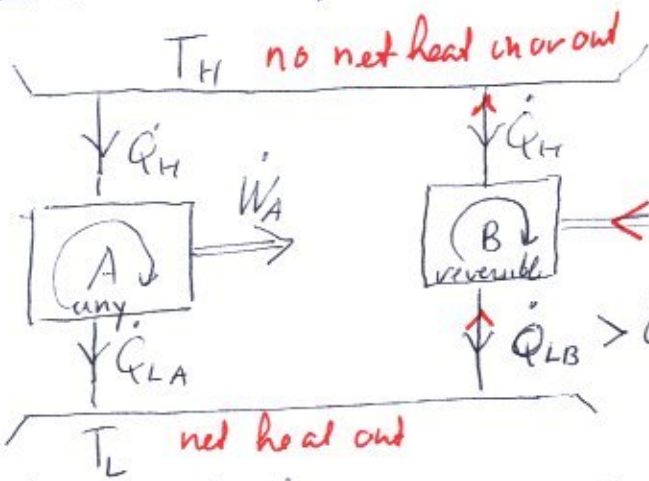 T_H no net heat in or out
Q̇_H
Ẇ_A
Q̇_H
A
any
B
reversible
Q̇_LA
Q̇_LB >
T_L net heat out